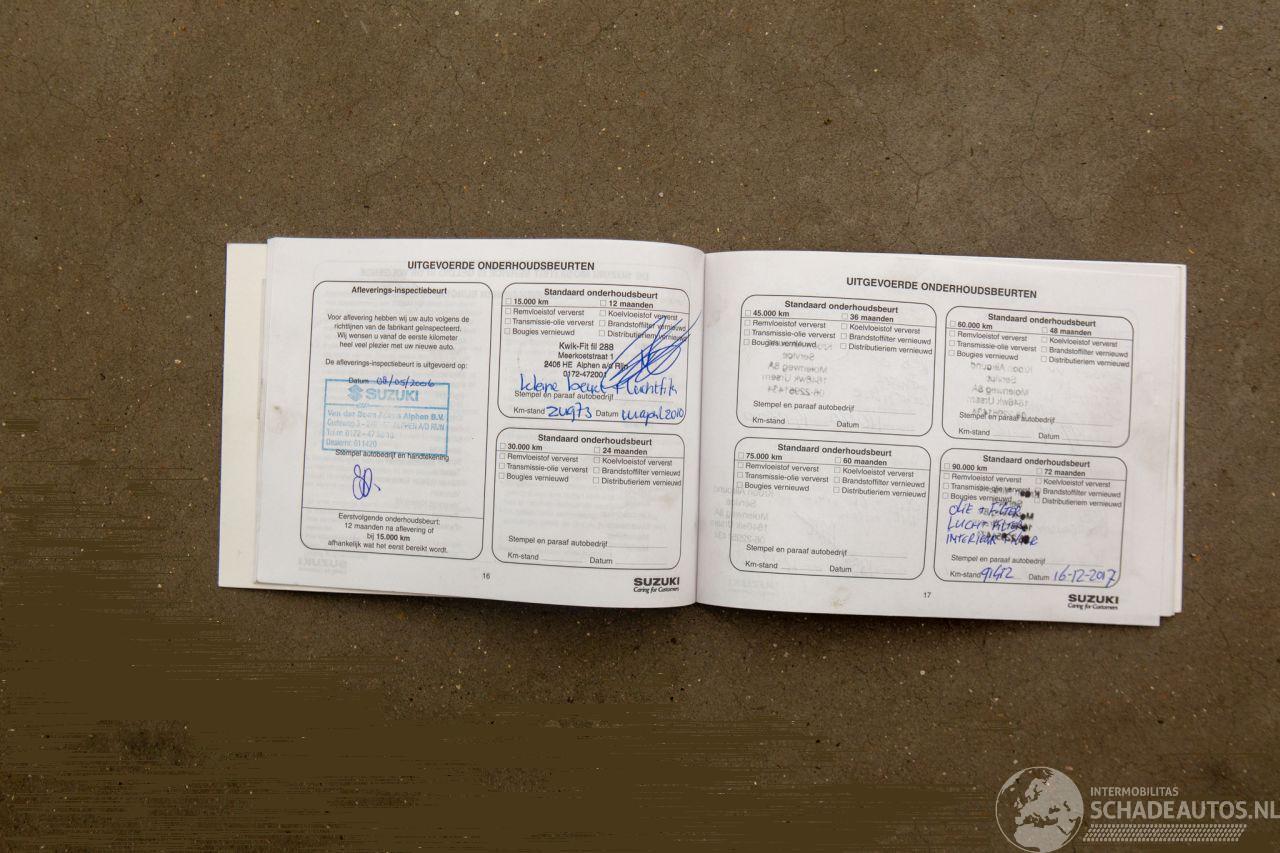 UITGEVOERDE ONDERHOUDSBEURTEN
Afleverings-inspectiebeurt
Voor aflevering hebben wij uw auto volgens de
richtlijnen van de fabrikant geïnspecteerd.
Wij wensen u vanaf de eerste kilometer
heel veel plezier met uw nieuwe auto.
De afleverings-inspectiebeurt is uitgevoerd op:
Datum 08/05/2006
SUZUKI
Alphen B.V.
ALPHEN A/D RIJN
Stempel autobedrijf en handtekening
Eerstvolgende onderhoudsbeurt:
12 maanden na aflevering of
bij 15.000 km
afhankelijk wat het eerst bereikt wordt.
Standaard onderhoudsbeurt
15.000 km 12 maanden
Remvloeistof ververst Koelvloeistof ververst
Transmissie-olie ververst Brandstoffilter vernieuwd
Bougies vernieuwd Distributieriem vernieuwd
Kwik-Fit fil 288
Meerkoetstraat 1
2406 HE Alphen a/d Rijn
0172-472001
kleine beurt + luchtfilt
Stempel en paraaf autobedrijf
Km-stand Datum april 2010
Standaard onderhoudsbeurt
30.000 km 24 maanden
Remvloeistof ververst Koelvloeistof ververst
Transmissie-olie ververst Brandstoffilter vernieuwd
Bougies vernieuwd Distributieriem vernieuwd
Stempel en paraaf autobedrijf
Km-stand Datum
16
SUZUKI
Caring for Customers
UITGEVOERDE ONDERHOUDSBEURTEN
Standaard onderhoudsbeurt
45.000 km 36 maanden
Remvloeistof ververst Koelvloeistof ververst
Transmissie-olie ververst Brandstoffilter vernieuwd
Bougies vernieuwd Distributieriem vernieuwd
Stempel en paraaf autobedrijf
Km-stand Datum
Standaard onderhoudsbeurt
60.000 km 48 maanden
Remvloeistof ververst Koelvloeistof ververst
Transmissie-olie ververst Brandstoffilter vernieuwd
Bougies vernieuwd Distributieriem vernieuwd
Stempel en paraaf autobedrijf
Km-stand Datum
Standaard onderhoudsbeurt
75.000 km 60 maanden
Remvloeistof ververst Koelvloeistof ververst
Transmissie-olie ververst Brandstoffilter vernieuwd
Bougies vernieuwd Distributieriem vernieuwd
Stempel en paraaf autobedrijf
Km-stand Datum
Standaard onderhoudsbeurt
90.000 km 72 maanden
Remvloeistof ververst Koelvloeistof ververst
Transmissie-olie ververst Brandstoffilter vernieuwd
Bougies vernieuwd Distributieriem vernieuwd
OLIE + FILTER
LUCHTFILTER
INTERIEUR
Stempel en paraaf autobedrijf
Km-stand 91412 Datum 16-12-2017
17
SUZUKI
Caring for Customers
INTERMOBILITAS
SCHADEAUTOS.NL